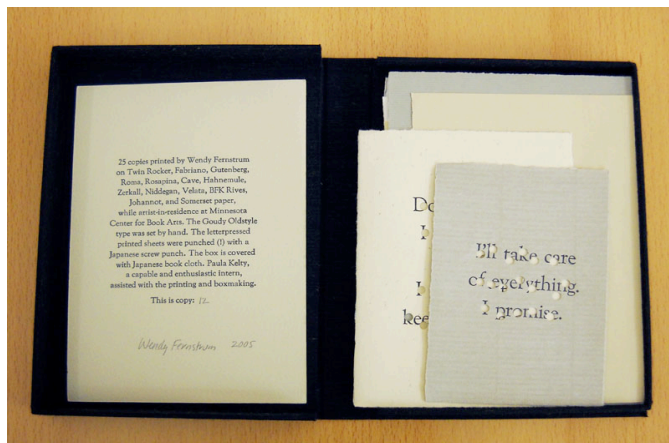 25 copies printed by Wendy Fernstrum
on Twin Rocker, Fabriano, Gutenberg,
Roma, Rosapina, Cave, Hahnemule,
Zerkall, Niddegan, Velata, BFK Rives,
Johannot, and Somerset paper,
while artist-in-residence at Minnesota
Center for Book Arts. The Goudy Oldstyle
type was set by hand. The letterpressed
printed sheets were punched (!) with a
Japanese screw punch. The box is covered
with Japanese book cloth. Paula Kelty,
a capable and enthusiastic intern,
assisted with the printing and boxmaking.
This is copy: 12
Wendy Fernstrum 2005
Do
I
I
kee
I'll take care
of everything.
I promise.